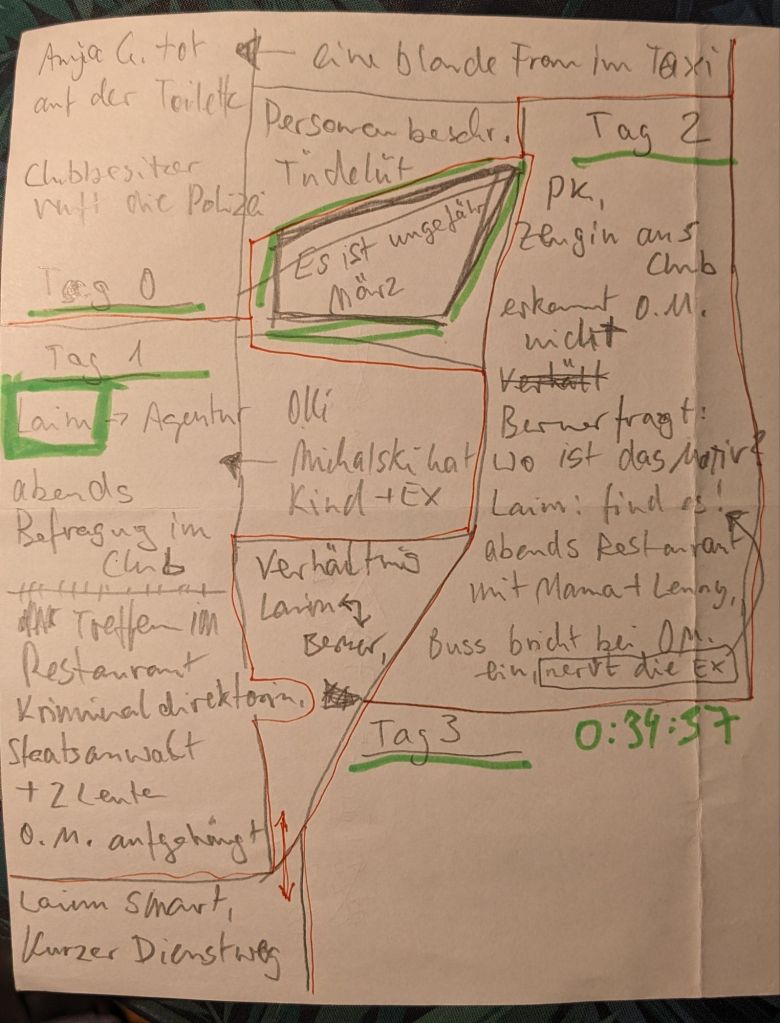 Anja G. tot
auf der Toilette
Clubbesitzer
ruft die Polizei
Tag 0
eine blonde Frau im Taxi
Personenbeschr.
Tüdelüt
Es ist ungefähr
März
Tag 1
Laim → Agentur
abends
Befragung im
Club
Treffen im
Restaurant
Kriminaldirektorin,
Staatsanwalt
+ 2 Leute
O.M. aufgehängt
Laim smart,
Kurzer Dienstweg
Olli
Michalski hat
Kind + EX
Verhältnis
Laim
Berner,
Tag 2
PK,
Zeugin aus
Club
erkennt O.M.
nicht
Verhält
Berner fragt:
wo ist das Motiv?
Laim: find es!
abends Restaurant
mit Mama + Lenny,
Buss bricht bei O.M.
ein, nervt die EX
Tag 3
0:34:37